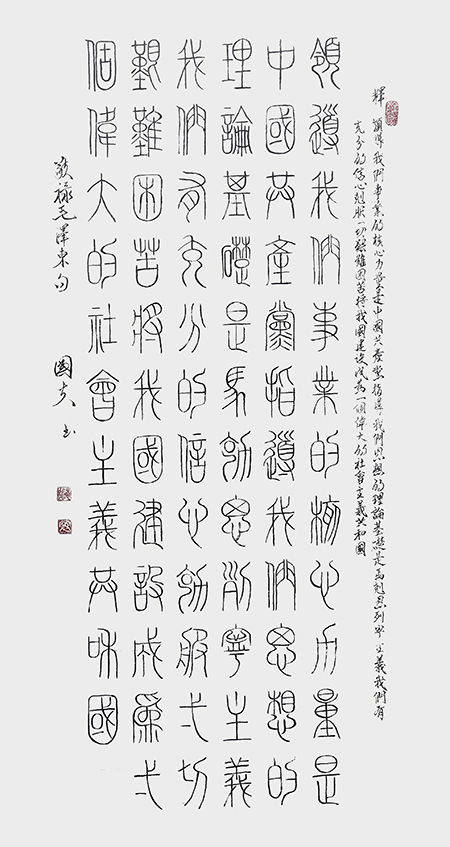 領導我們事業的核心力量是中國共產黨指導我們思想的理論基礎是馬剋思列寧主義我們有
充分的信心剋服一切艱難困苦將我國建設成為一個偉大的社會主義共和國
領導我們事業的核心力量是
中國共產黨指導我們思想的
理論基礎是馬剋思列寧主義
我們有充分的信心剋服一切
艱難困苦將我國建設成為一
個偉大的社會主義共和國
敬録毛澤東句
國夫书